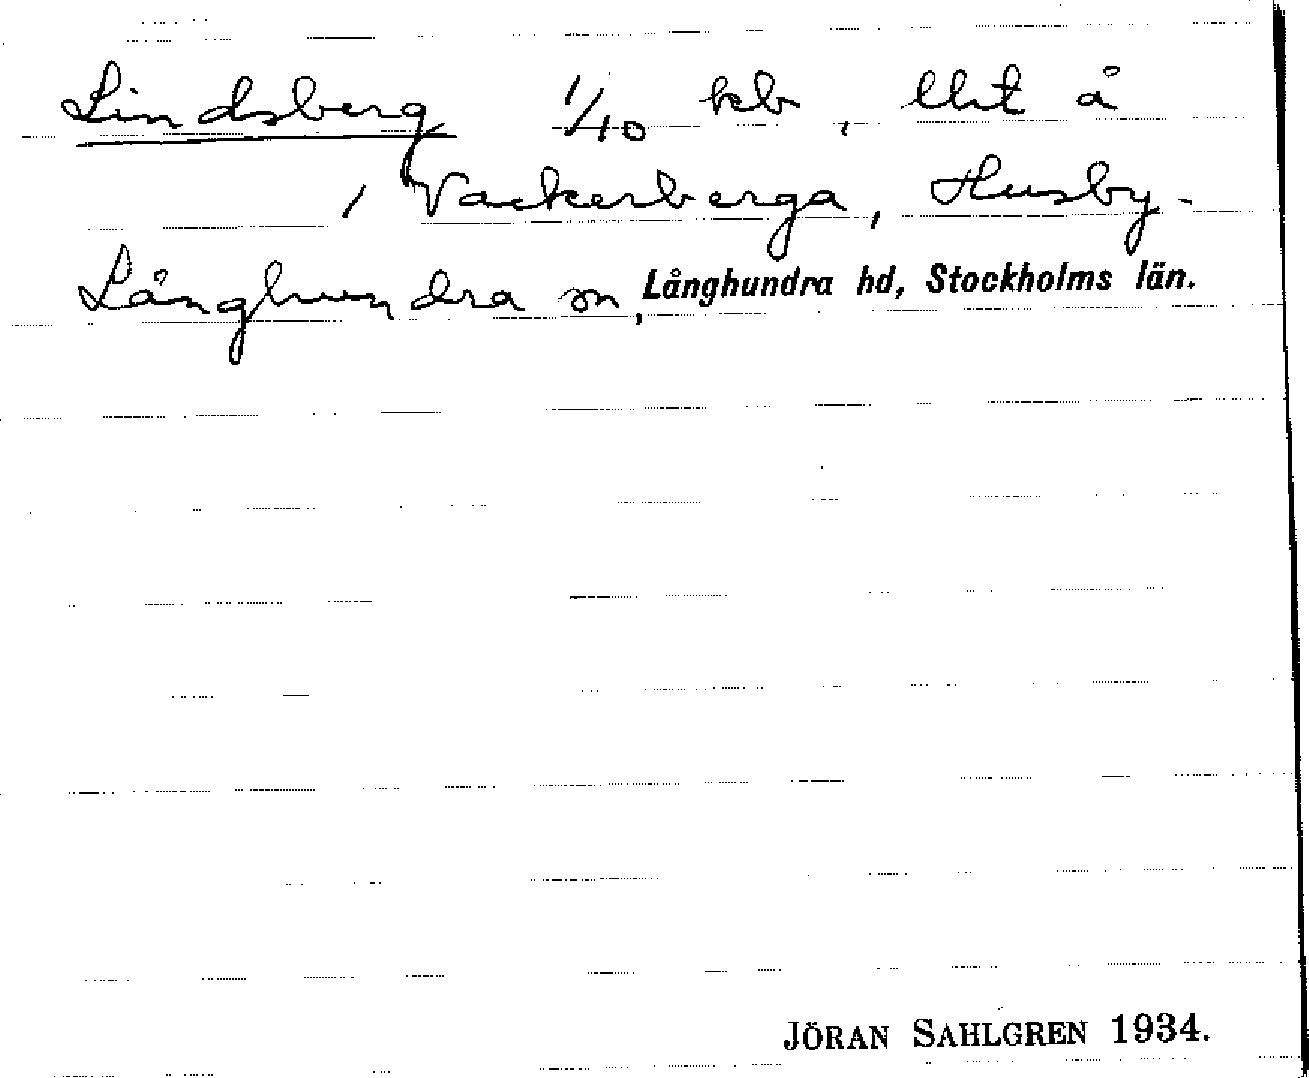 Lindsberg 1/10 kb, Uht å
1 Vackerberga, Husby-
Långhundra sn, Långhundra hd, Stockholms län.
JÖRAN SAHLGREN 1934.